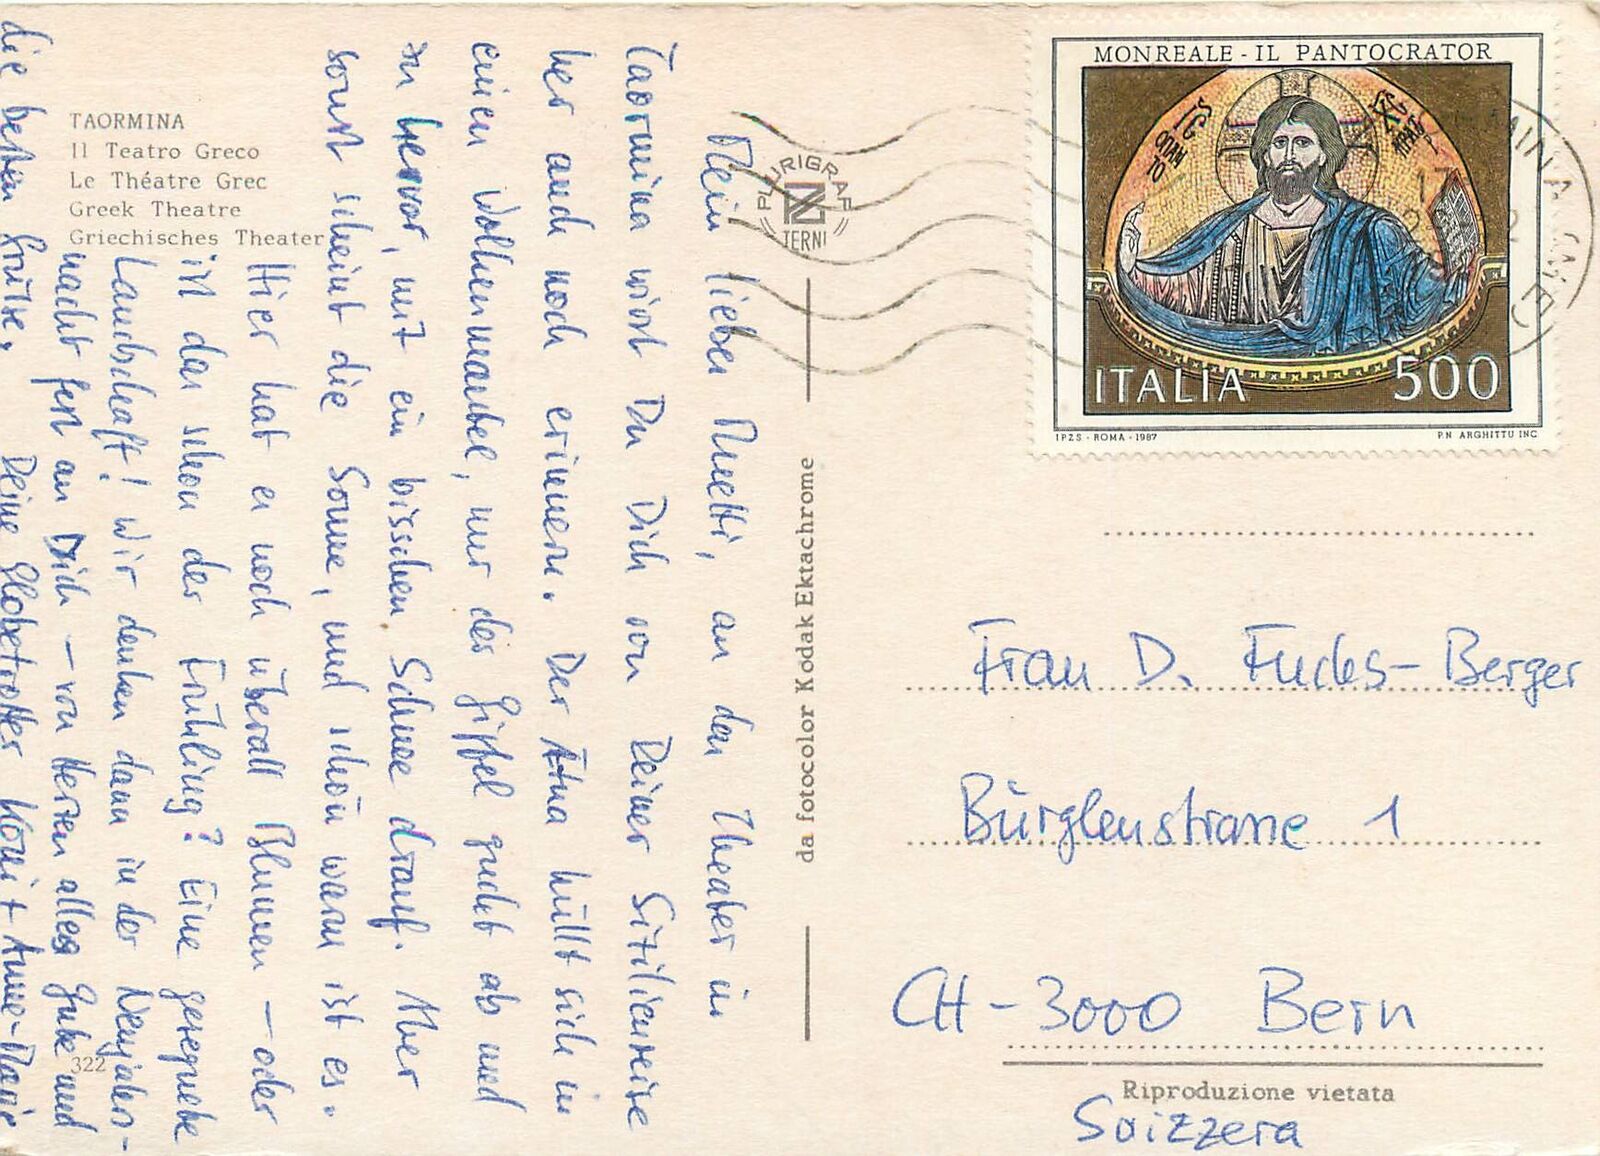 TAORMINA
Il Teatro Greco
Le Théatre Grec
Greek Theatre
Griechisches Theater
Mein lieber Muetti, an das Theater in
Taormina wirst Du Dich von Deiner Sizilienreise
her auch noch erinnern. Der Ätna hüllt sich in
einen Wolkenmantel, nur der Gipfel guckt ab und
zu hervor, mit ein bisschen Schnee drauf. Aber
sonst scheint die Sonne, und schön warm ist es.
Hier hat es noch überall Blumen – oder
ist das schon der Frühling? Eine gesegnete
Landschaft! Wir denken dann in der Neujahrs-
nacht fest an Dich – von Herzen alles Gute und
die besten Grüsse. Deine Globetrotter Köni + Anne-Marie
322
PLURIGRAF
TERNI
da fotocolor Kodak Ektachrome
MONREALE - IL PANTOCRATOR
ITALIA 500
I.P.Z.S. - ROMA - 1987
P.N. ARGHITTU INC
Frau D. Fuchs-Berger
Bürglenstrasse 1
CH-3000 Bern
Riproduzione vietata
Svizzera